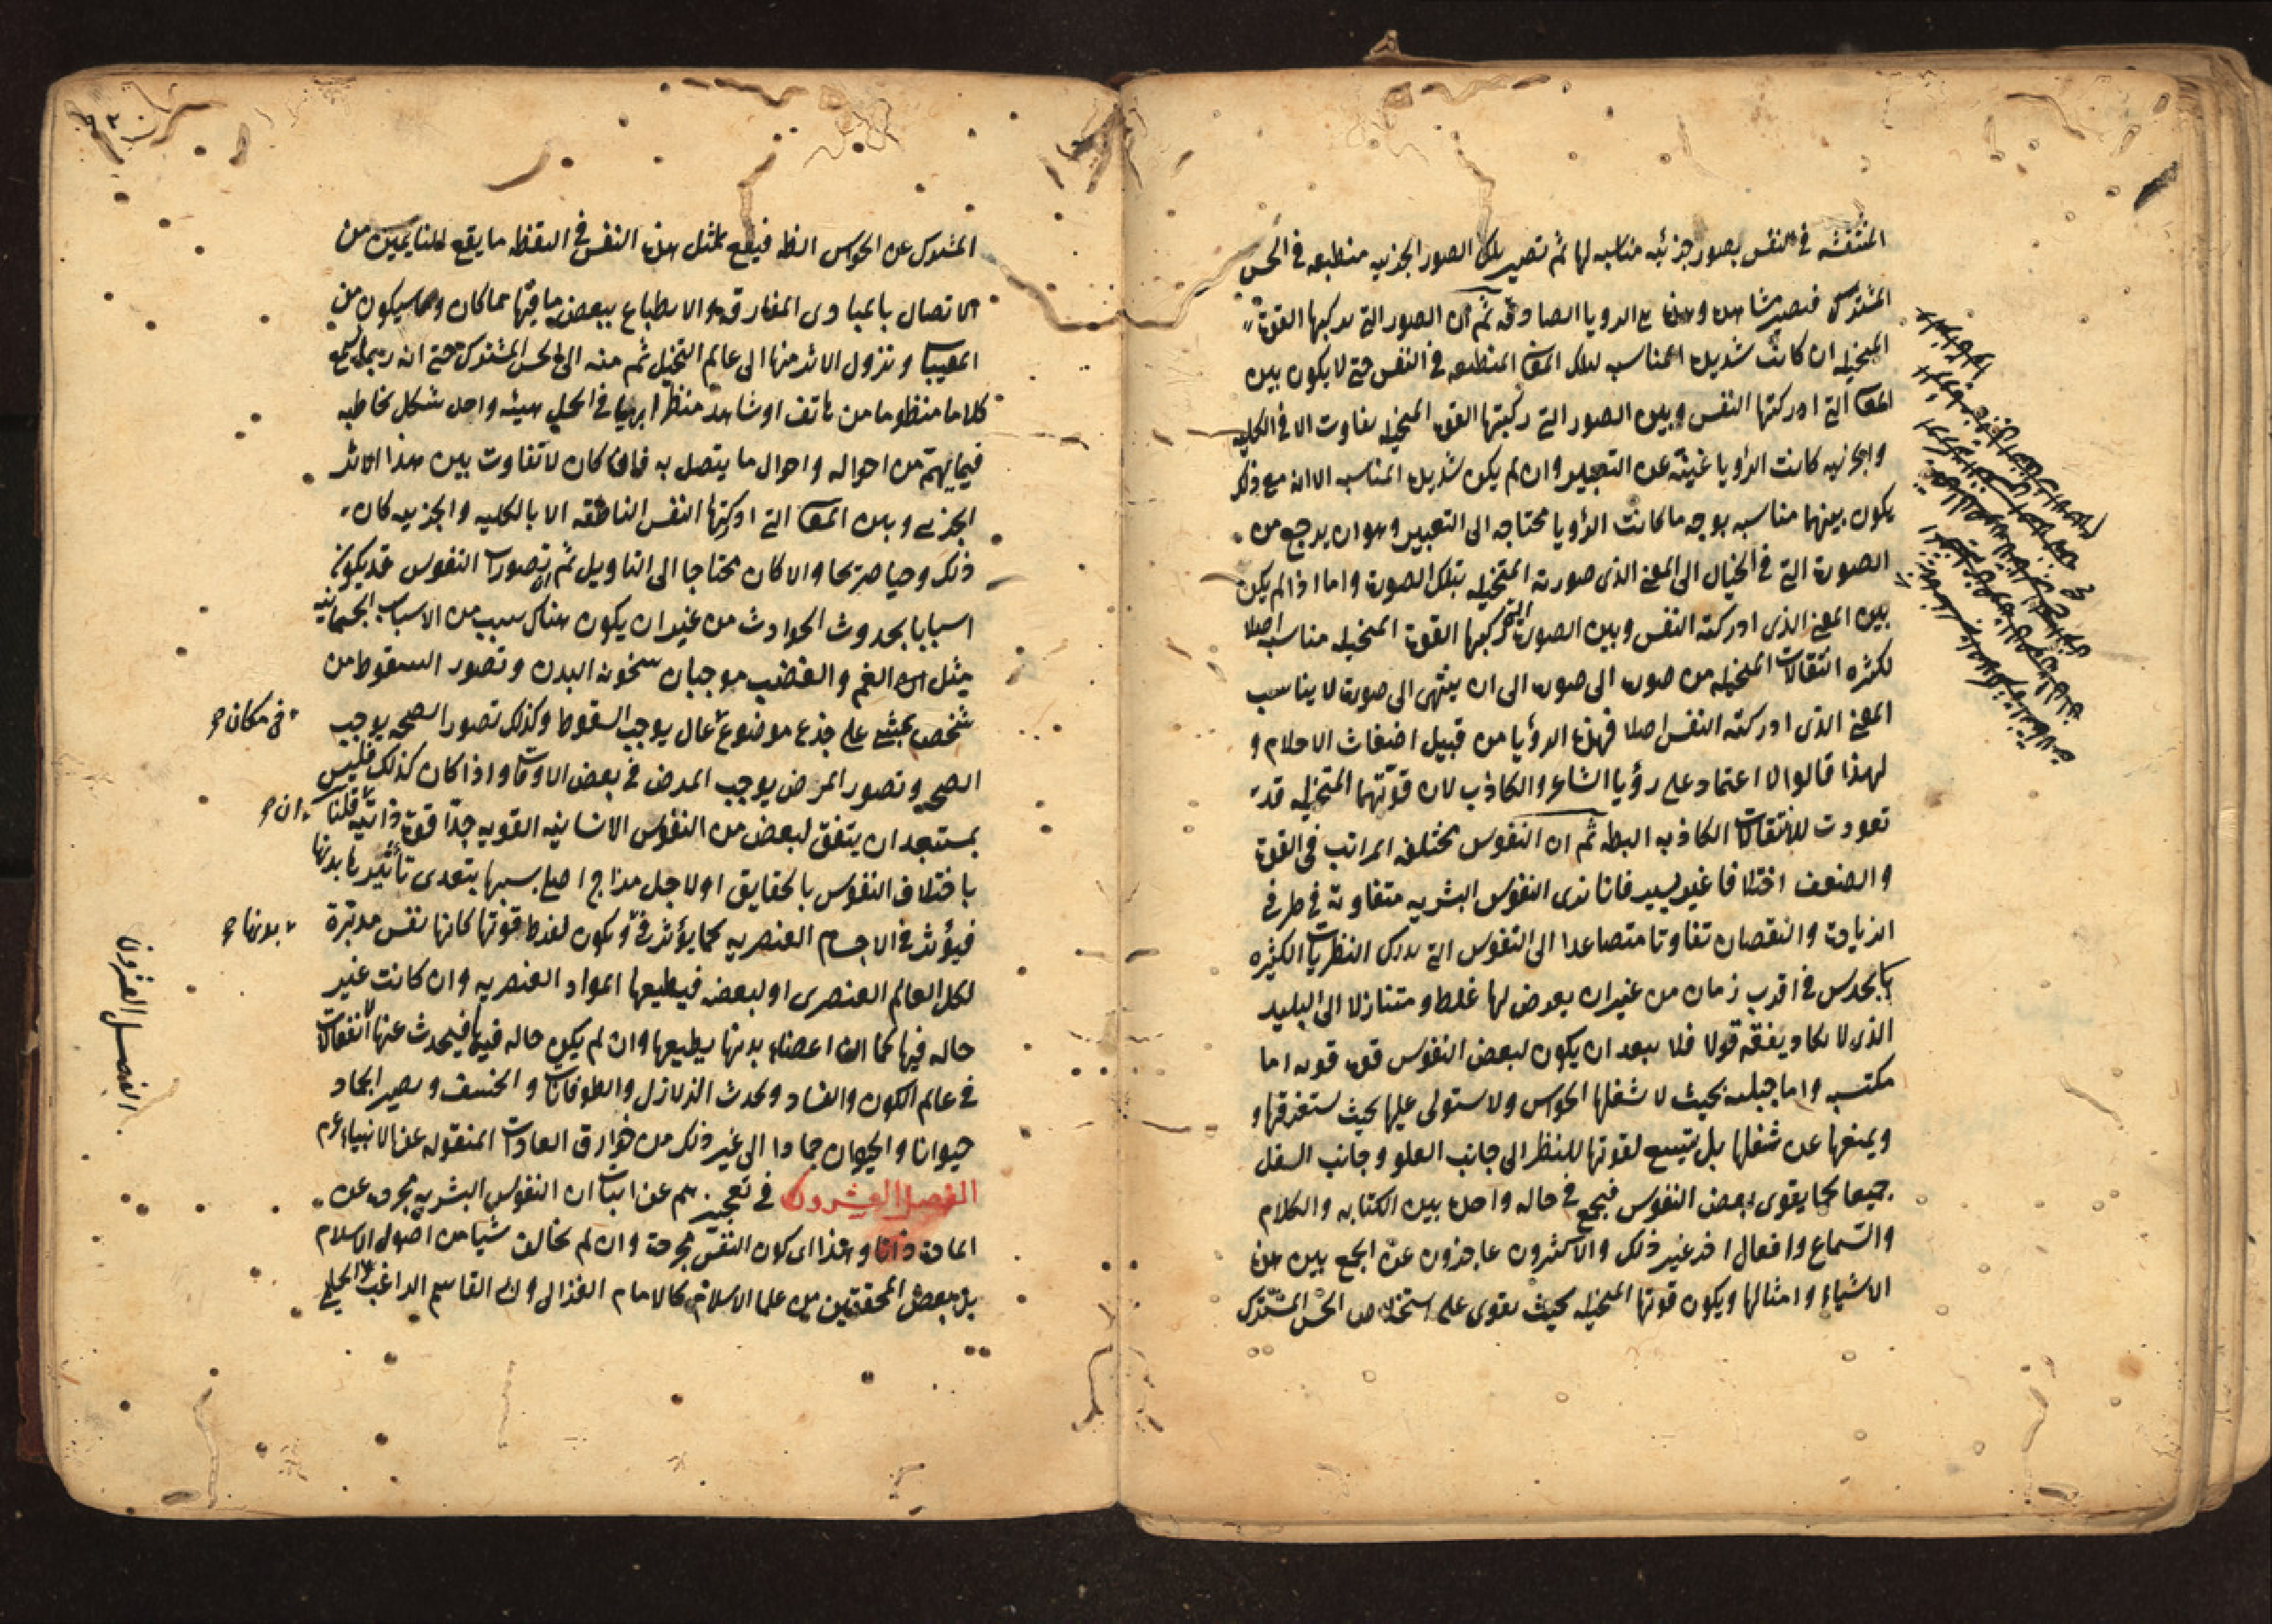 المنتقشه في النفس بصور جزئيه مناسبه لها ثم تصير تلك الصور الجزييه منطبعه في الحس
المشترك فتصير مشاهده وهذه هي الرويا الصادقه ثم ان الصور التي تركبها القوة
المتخيله ان كانت شديدة المناسبه لتلك المعاني المنطبعه في النفس حتى لا يكون بين
المعاني التي ادركتها النفس وبين الصور التي ركبتها القوة المتخيله تفاوت الا في الكليه
والجزييه كانت الرؤيا غنية عن التعبير وان لم يكن شديدة المناسبه الا انه مع ذلك
يكون بينهما مناسبه بوجه ما كانت الرؤيا محتاجه الى التعبير وهو ان يرجع من
الصورة التي في الخيال الى المعنى الذي صورته المتخيله بتلك الصورة واما اذا لم يكن
بين المعنى الذي ادركته النفس وبين الصورة التي ركبها القوة المتخيله مناسبه اصلا
لكثره انتقالات المتخيله من صورة الى صورة الى ان ينتهي الى صورة لا يناسب
المعنى الذي ادركته النفس اصلا فهذه الرؤيا من قبيل اضغاث الاحلام و
لهذا قالوا لا اعتماد على رؤيا الشاعر والكاذب لان قوّتهما المتخيله قد
تعودت للانتقالات الكاذبه الباطله ثم ان النفوس مختلفه المراتب في القوة
والضعف اختلافا غير يسير فانا نرى النفوس البشريه متفاوتة في طرفي
الزيادة والنقصان تفاوتا متصاعدا الى النفوس التي يدرك النظريات الكثيره
بالحدس في اقرب زمان من غير ان يعرض لها غلط ومتنازلا الى البليد
الذي لا يكاد يفقه قولا فلا يبعد ان يكون لبعض النفوس قوة قويه اما
مكتسبه واما جبليه بحيث لا يشغلها الحواس ولا يستولي عليها بحيث يستغرقها و
ويمنعها عن شغلها بل يتسع لقوتها للنظر الى جانب العلو وجانب السفل
جميعا كما يقوى بعض النفوس فيجمع في حاله واحدة بين الكتابه والكلام
والسماع وافعال اخر غير ذلك والاكثرون عاجزون عن الجمع بين هذه
الاشياء وامثالها ويكون قوتها المتخيله بحيث يقوى على استخلاص الحس المشترك
المشترك عن الحواس الظ فيقع لمثل هذه النفس في اليقظه ما يقع للنايمين من
الاتصال بالمبادى المفارقه والانطباع ببعض ما فيها مما كان وما سيكون من
المغيبات ونزول الاثر منها الى عالم التخيل ثم منه الى الحس المشترك حتى انه ربما يسمع
كلاما منظوما من هاتف او شاهد منظرا بهيا في اجل هيئه واجل شكل يخاطبه
فيما يهمّه من احواله واحوال ما يتصل به فان كان لا تفاوت بين هذا الاثر
الجزيي وبين المعاني التي ادركتها النفس الناطقه الا بالكليه والجزييه كان
ذلك وحيا صريحا والا كان محتاجا الى التاويل ثم ان تصورات النفوس قد يكون
اسبابا بحدوث الحوادث من غير ان يكون هناك سبب من الاسباب الجسمانيه
مثل ان الغم والغضب موجبان سخونة البدن وتصور السقوط من
شخص يمشي على جذع موضوع عال يوجب السقوط وكذلك تصور الصحه يوجب
في مكان
الصحه وتصور المرض يوجب المرض في بعض الاوقات واذا كان كذلك فليس
بمستبعد ان يتفق لبعض من النفوس الانسانيه القويه جدّا قوة ذاتيّه قلنا
ان
باختلاف النفوس بالحقايق او لاجل مزاج اصلي بسببها يتعدى تأثيرها بدنها
فيؤثر في الاجسام العنصريه كما يؤثر في ويكون لفرط قوتها كانها نفس مدبّرة
بدنها
لكل العالم العنصري او لبعضه فيطيعها المواد العنصريه وان كانت غير
حاله فيها كما ان اعضاء بدنها يطيعها وان لم يكن حاله فيها فيحدث عنها انفعالات
في عالم الكون والفساد ويحدث الزلازل والطوفانات والخسف ويصير الجماد
حيوانا والحيوان جمادا الى غير ذلك من خوارق العادات المنقوله عن الانبياء عم
الفصل العشرون في تعجيزهم عن اثبات ان النفوس البشريه مجرده عن
المادة ذاتا وهذا اى كون النفس مجردة وان لم تخالف شيا من اصول الاسلام
بل بعض المحققين من علما الاسلام كالامام الغزالى وابى القاسم الراغب والحليمي
الفصل العشرون